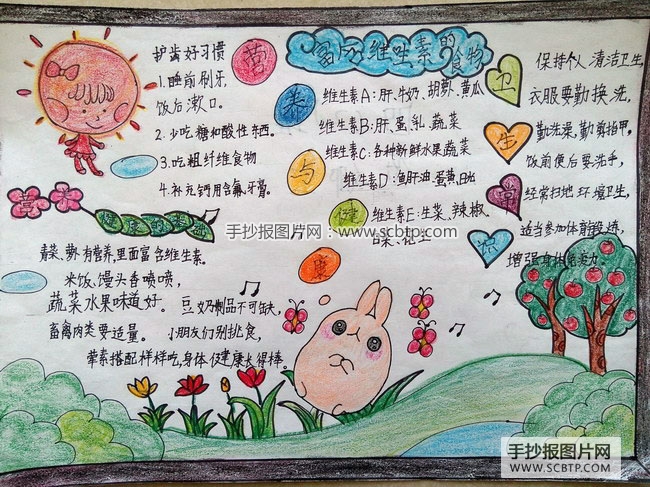 护齿好习惯
1.睡前刷牙,
饭后漱口。
2.少吃糖和酸性东西。
3.吃粗纤维食物
4.补充钙用含氟牙膏。
营
养
与
健
康
富含维生素的食物
维生素A:肝、牛奶、胡萝卜、黄瓜
维生素B:肝、蛋、乳、蔬菜
维生素C:各种新鲜水果蔬菜
维生素D:鱼肝油、蛋黄、
维生素E:生菜、辣椒、
卫
生
常
识
保持个人清洁卫生
衣服要勤换洗,
勤洗澡,勤剪指甲,
饭前便后要洗手,
经常扫地环境卫生,
适当参加体育锻连,
增强
青菜、萝卜有营养,里面富含维生素。
米饭、馒头香喷喷,
蔬菜水果味道好。豆奶制品不可缺,
畜禽肉类要适量。小朋友们别挑食,
荤素搭配样样吃,身体健康长得棒。
手抄报图片网:www.scbtp.com
手抄报图片网
WWW.SCBTP.COM